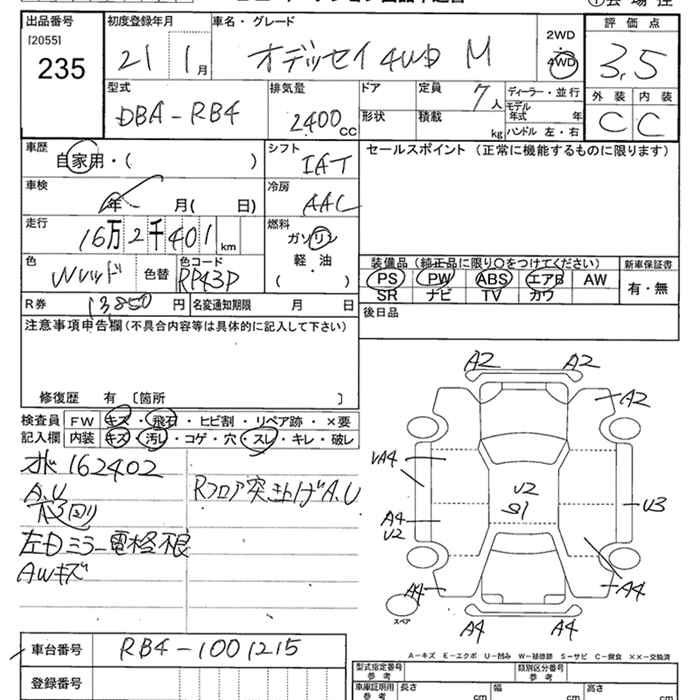 出品番号 初度登録年月 車名・グレード 評価点
[2055]
235
21 1月
オデッセイ 4WD M
2WD
4WD
3.5
型式 排気量 ドア 定員 7人 ディーラー・並行
DBA-RB4 2400cc
形状 積載 kg
モデル年式 年
ハンドル 左・右
外装 内装
C C
車歴 シフト セールスポイント (正常に機能するものに限ります)
自家用・( ) IAT
車検 冷房
年 月( 日) AAC
走行 燃料
16万2千401km ガソリン
軽・油
( )
色 色替 色コード
Wレッド RP43P
装備品 (純正品に限り〇をつけてください) 新車保証書
PS PW ABS エアB AW 有・無
SR ナビ TV カワ
R券 13850円 名変通知期限 月 日
後日品
注意事項申告欄(不具合内容等は具体的に記入して下さい)
修復歴 有 〔箇所 〕
検査員 FW キズ・飛石・ヒビ割・リペア跡・×要
記入欄 内装 キズ・汚レ・コゲ・穴・スレ・キレ・破レ
162402
A.U
Rフロア突き上げA.U
左Dミラー電格不良
AWキズ
A2 A2
A2
VA4
U2
S1
U3
A4
U2
A4 A4
A4 A4
スペア
A-キズ E-エクボ U-凹み W-補修跡 S-サビ C-腐食 ××-交換済
車台番号 RB4-1001215
登録番号
型式指定番号 参考 類別区分番号 参考
車庫証明用 参考 長さ cm 幅 cm 高さ cm